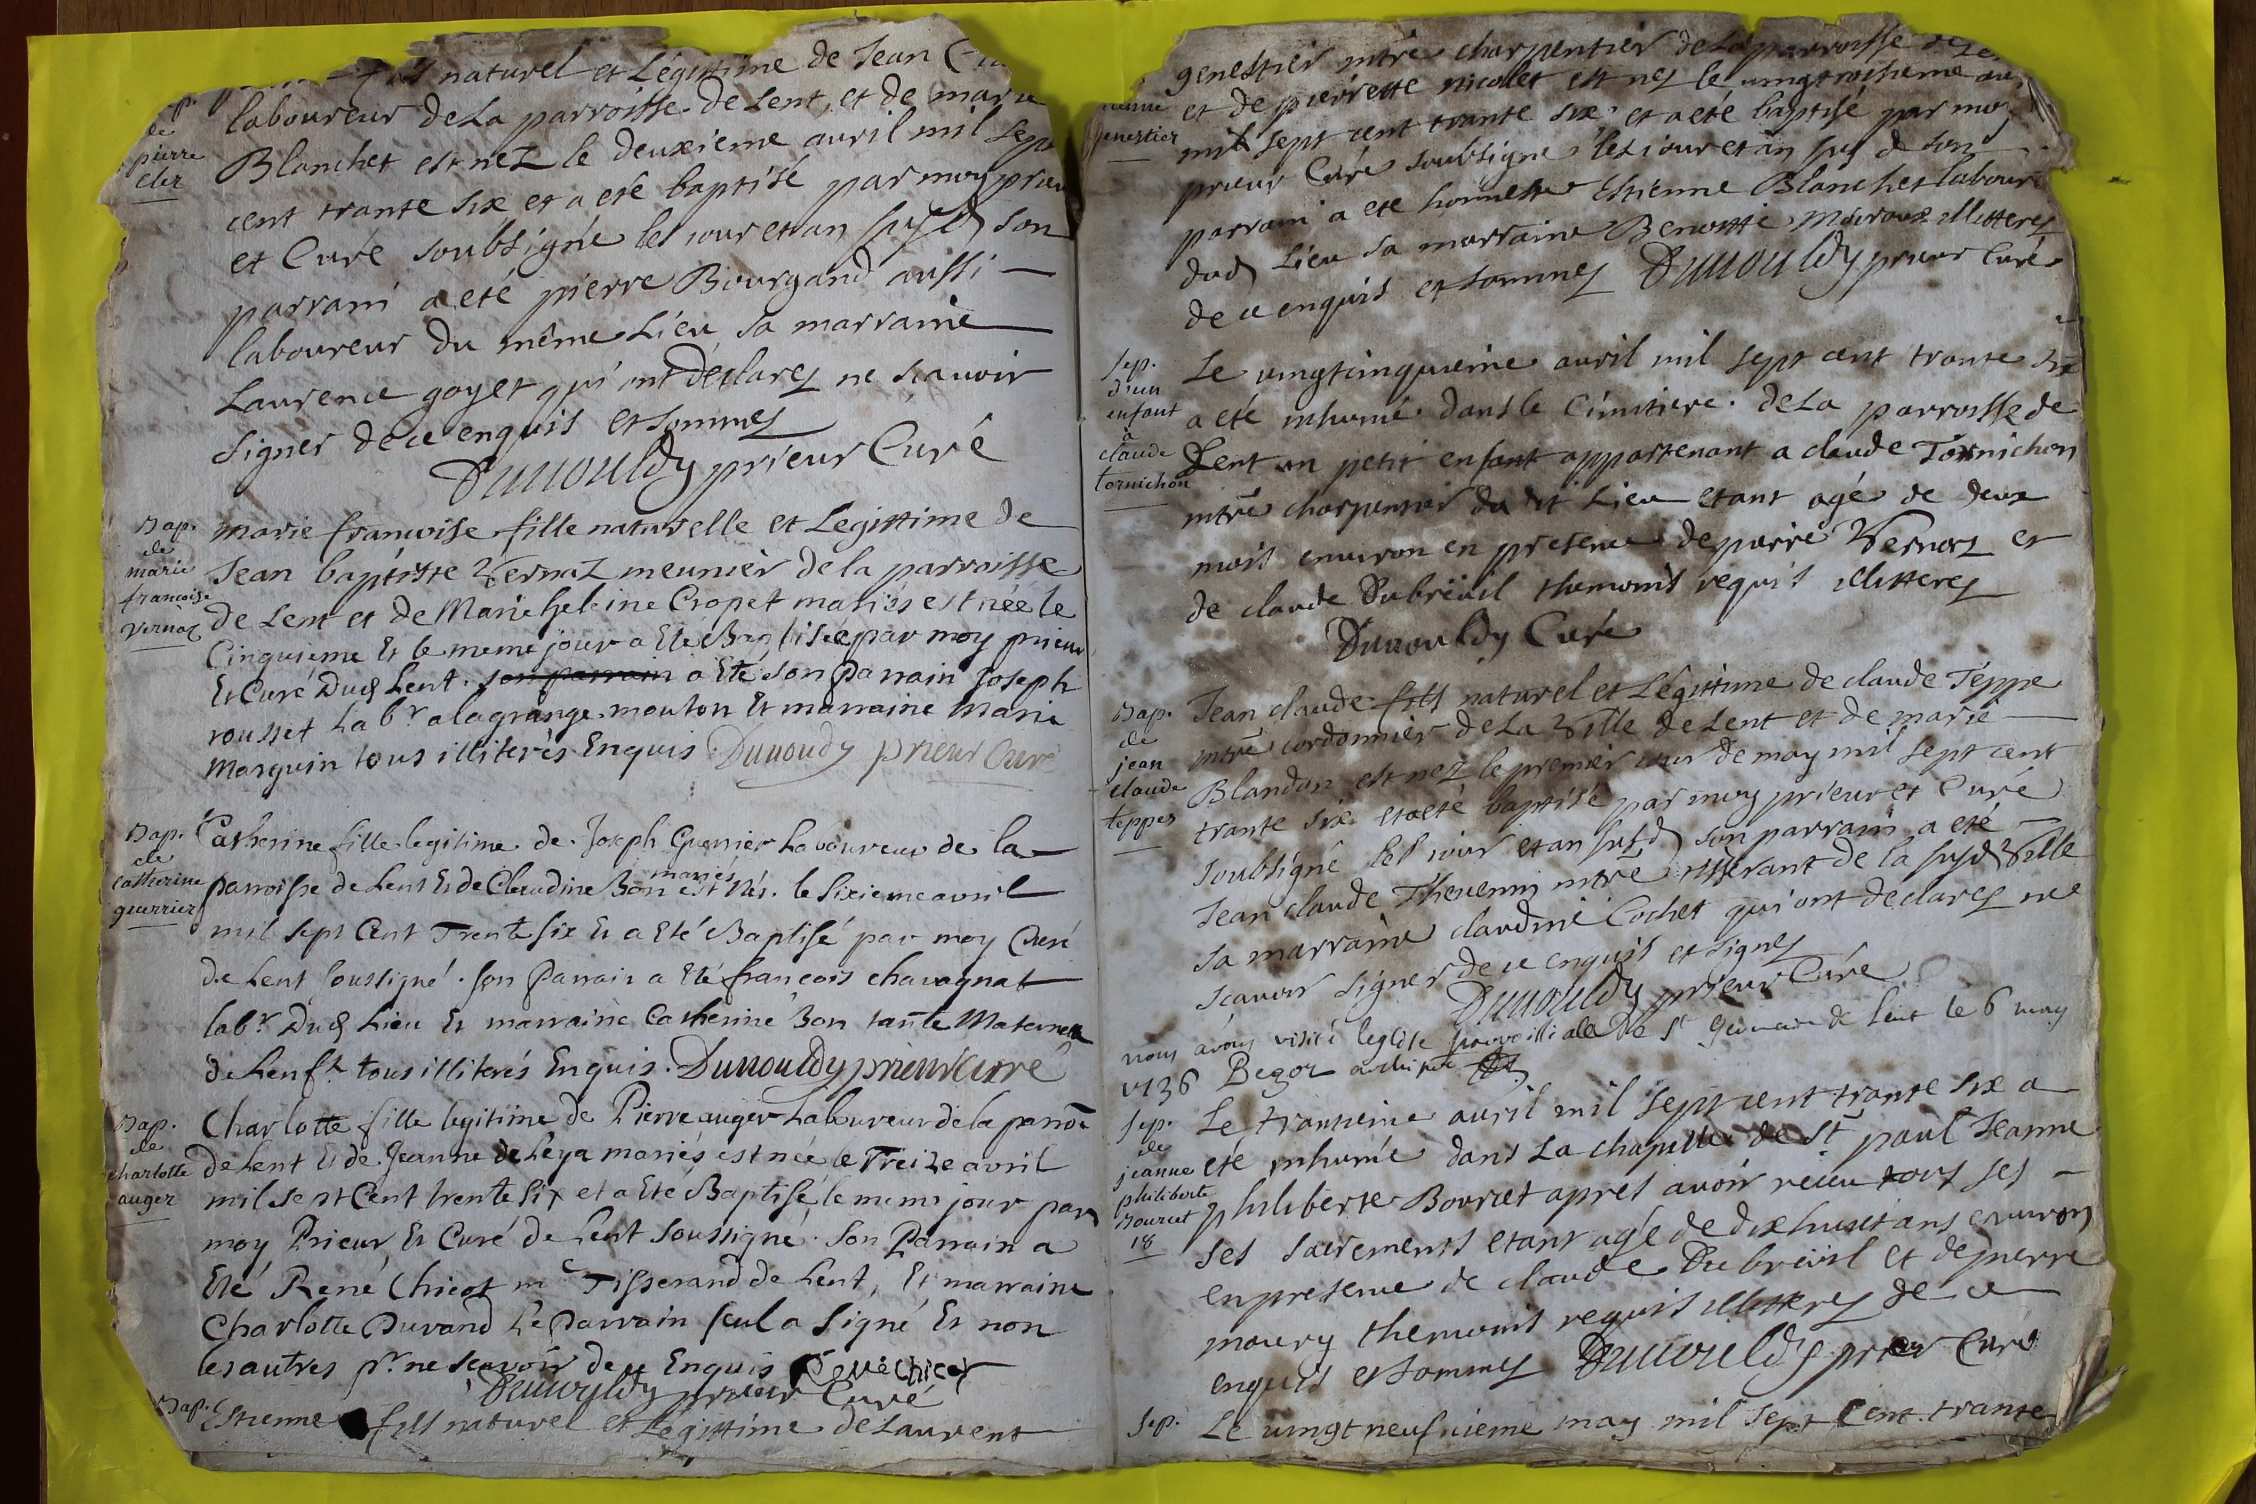 naturel et Légittime de Jean
laboureur de La parroisse de Lent, et de marie
Blanchet est nez le deuxieme auril mil sept
cent trante six et a eté baptisé par moy prieur
et Curé soubsigné les jour et an susd son
parrain a eté pierre Bourgand aussi
laboureur du même Lieu sa marraine
Laurence goyet qui ont déclarez ne scauoir
signer de ce enquis et sommez
Duuouldy prieur Curé
Bap.
de
marie
francoise
vernaz
marie francoise fille naturelle et Legittime de
Jean baptiste Vernaz meunier de la parroisse
de Lent et de Marie heleine Cropet mariés est née le
Cinquieme Et le meme jour a Eté Baptisée par moy prieur
Et Curé Dud Lent. son parrain a Eté son Parrain Joseph
rousset Labr a lagrange mouton Et marraine Marie
Marguin tous illiterés Enquis. Duuoudy prieur Curé
Bap.
de
catherine
guerrier
Catherine fille legitime de Joseph Guerrier Laboureur de la
mariés
parroisse de Lent Et de Claudine Bon est née le sixieme avril
mil sept Cent Trente six Et a Eté Baptisé par moy Curé
de Lent soussigné. son Parrain a Eté françois chavagnat
labr Dud Lieu Et marraine Catherine Bon tante Maternelle
de Lenft tous illiterés Enquis. Duuouldy prieur Curé
Bap.
de
charlotte
auger
Charlotte fille legitime de Pierre auger Laboureur de la parroe
de Lent Et de Jeanne de Leya mariés est née le Treize avril
mil sept Cent trente six et a Eté Baptisé le meme jour par
moy Prieur Et Curé de Lent soussigné. Son Parrain a
Eté René Chicot me Tisserand de Lent, Et marraine
Charlotte Durand Le Parrain seul a signé Et non
les autres pr ne scavoir de ce Enquis René chicot
Duuouldy prieur Curé
Bap.
Estienne fils naturel et Légittime de Laurent
pierre
genestier mtre charpentier de La parroisse de Lent
et de pierrette nicollet est nez le uingtroisieme auril
mil sept cent trante six et a eté baptisé par moy
prieur Curé soubsigné les iour et an susd son
parrain a eté honneste Estienne Blanchet laboureur
dud Lieu sa marraine Benoitte illitterez
de ce enquis et sommez Duuouldy prieur Curé
genestier
Sep.
d'un
enfant
a
claude
tornichon
Le uingtcinquieme auril mil sept cent trante six
a eté inhumé dans le Cimitiere de La parroisse de
Lent un petit enfant appartenant a claude Tornichon
mtre charpentier du dit Lieu etant agé de deux
mois enuiron en presence de pierre Vernaz et
de claude Dubreüil themoins requis illitterez
Duuouldy Curé
Bap.
de
jean
claude
teppes
Jean claude fils naturel et Légittime de claude Teppe
mtre cordonnier de La Ville de Lent et de marie
Blandon est nez le premier iour de may mil sept cent
trante six et a eté baptisé par moy prieur et Curé
soubsigné les iour et an susd son parrain a eté
Jean claude Theuenin mtre tisserant de la susd Ville
sa marraine claudine Cochet qui ont declarez ne
scauoir signer de ce enquis et signez
Duuouldy prieur Curé
nous avons visité leglise parroissialle de St Germain de Lent le 6 may
1736 Begoz archiprêtre
Sep.
de
jeanne
philiberte
Bourcet
18
Le trantieme auril mil sept cent trante six a
eté inhumée dans La chapelle de St paul Jeanne
philiberte Bourcet apres auoir receu tous ses
ses sacrements etant agée de dixhuict ans enuiron
en presence de claude Dubreüil et de pierre
moury themoins requis illitterez de ce
enquis et sommez Duuouldy prieur Curé
Sep.
Le uingt neufuieme may mil sept Cent trante